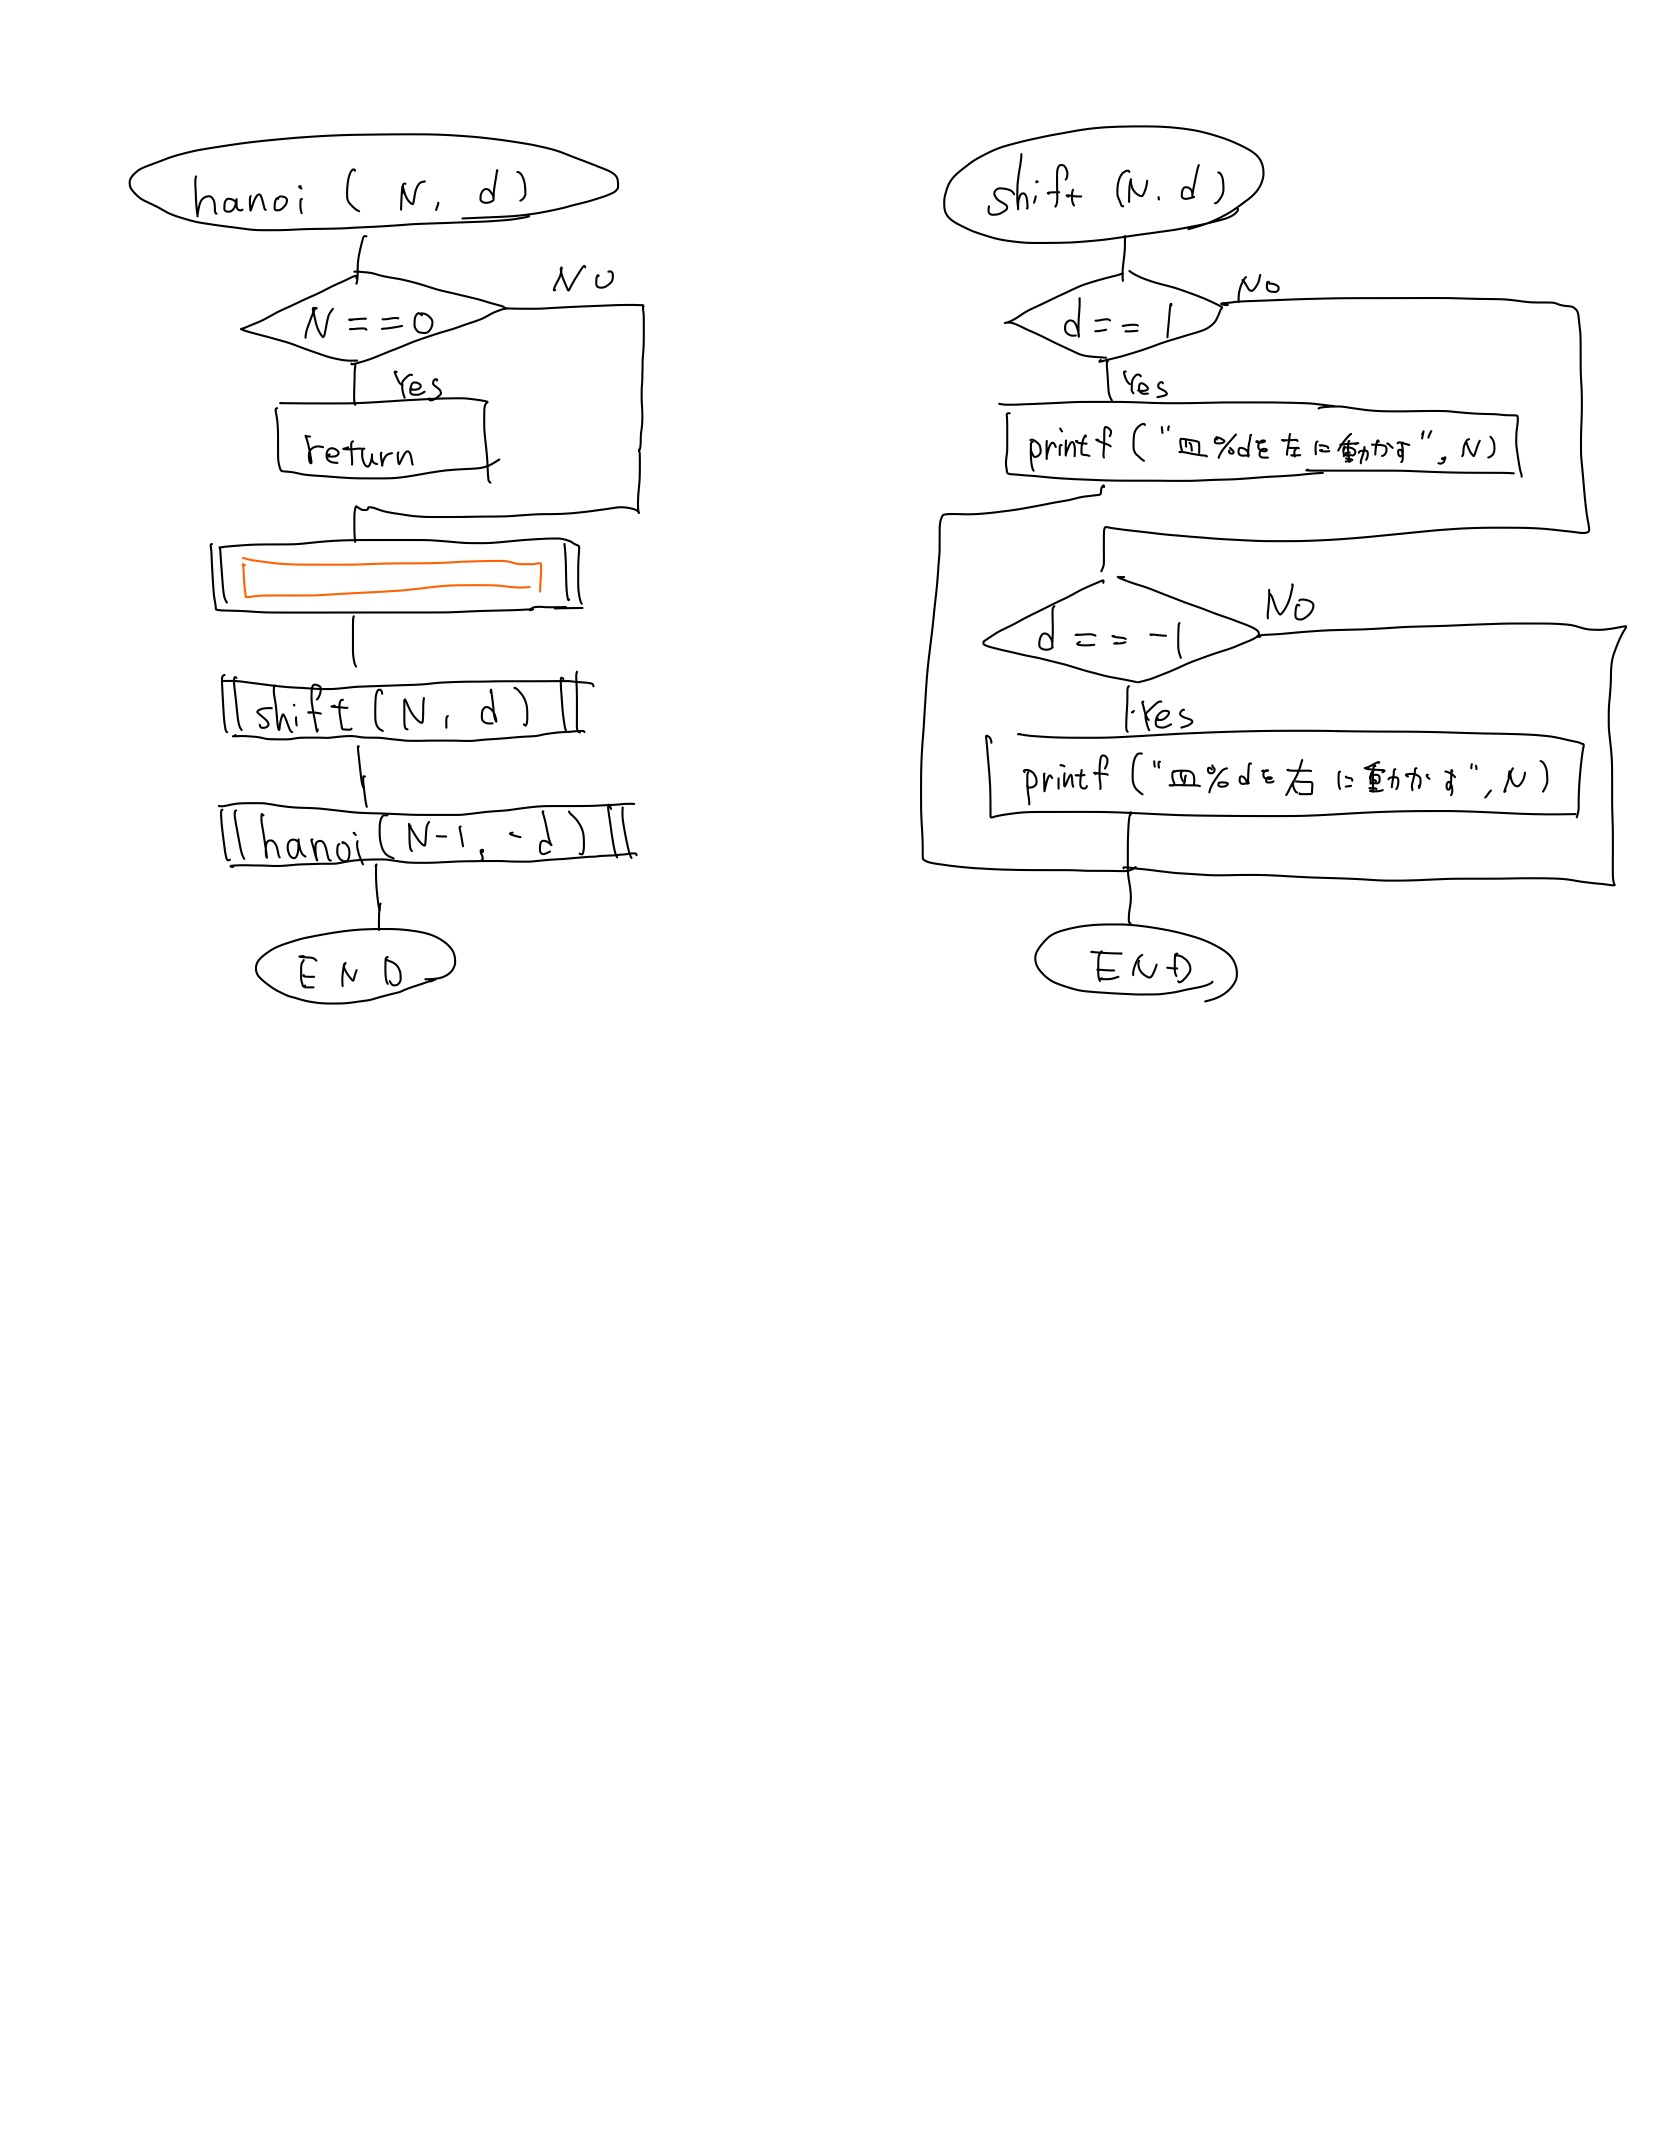 hanoi ( N, d )
NO
N = = 0
Yes
return
shift ( N, d )
hanoi ( N-1, -d )
END
shift (N. d )
No
d = = 1
Yes
printf ("皿%dを左に動かす", N)
NO
d = = -1
Yes
printf ("皿%dを右に動かす", N)
END